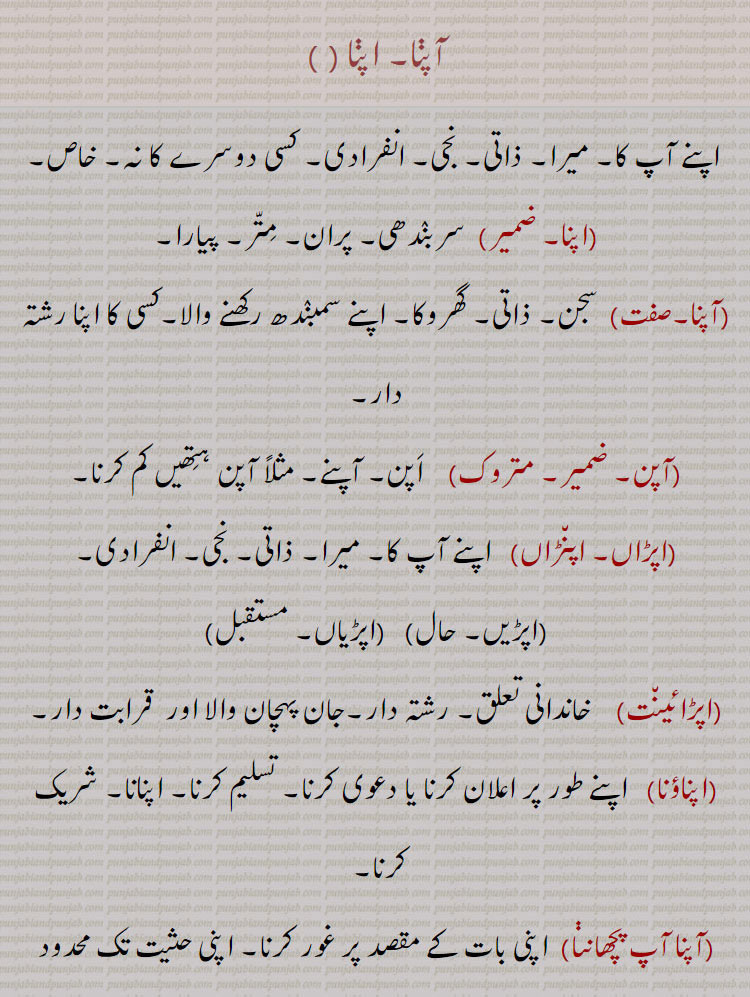 آپݨا۔ اپݨا ( )
اپنے آپ کا۔ میرا۔ ذاتی۔ نجی۔ انفرادی۔ کسی دوسرے کا نہ۔ خاص۔
(اپنا۔ ضمیر) سر بنْدھی۔ پران۔ مِتّر۔ پیارا۔
(آپنا۔صفت) سجن۔ ذاتی۔ گھروکا۔ اپنے سمبنْدھ رکھنے والا۔کسی کا اپنا رشتہ
دار۔
(آپن۔ ضمیر۔ متروک) اَپن۔ آپنے۔ مثلاً آپن ہتِھیں کم کرنا۔
(اپڑاں۔ اپنّڑاں) اپنے آپ کا۔ میرا۔ ذاتی۔ نجی۔ انفرادی۔
(اپڑیں۔ حال) (اپڑیاں۔ مستقبل)
(اپڑائینّت) خاندانی تعلق۔ رشتہ دار۔جان پہچان والا اور قرابت دار۔
(اپناؤنا) اپنے طور پر اعلان کرنا یا دعوی کرنا۔ تسلیم کرنا۔ اپنانا۔ شریک
کرنا۔
(آپنا آپ پچھاننݨا) اپنی بات کے مقصد پر غور کرنا۔ اپنی حثیت تک محدود